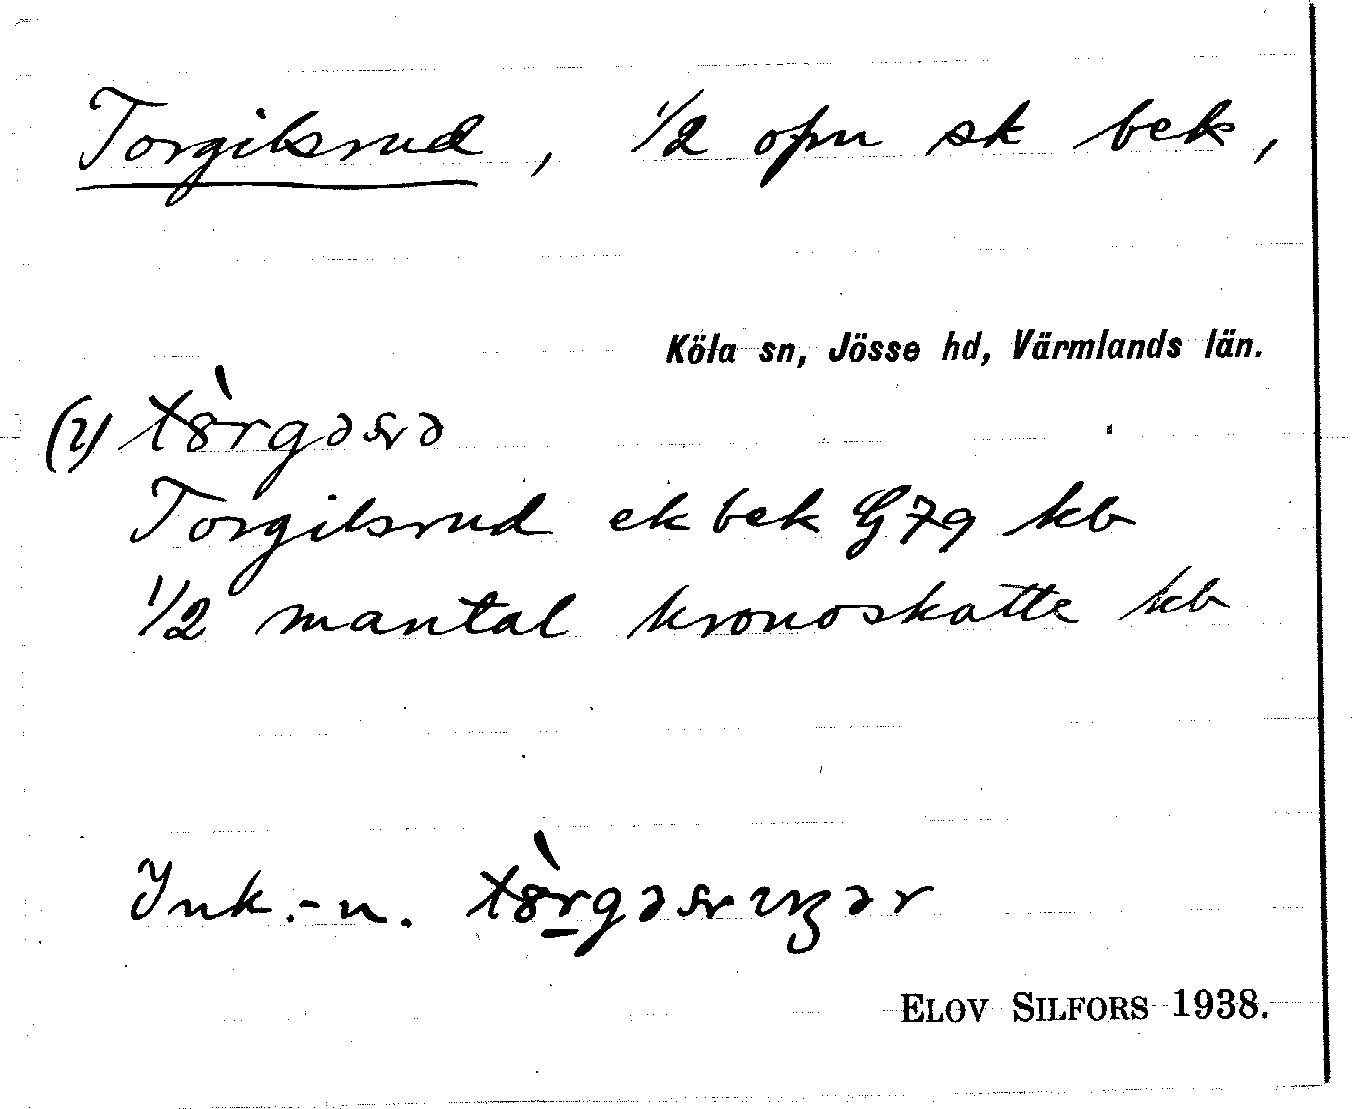 Torgilsrud, 1/2 ofru sk bek,
Köla sn, Jösse hd, Värmlands län.
(i)
Torgilsrud ek bek G79 kb
1/2 mantal kronoskatte kb
Ink.-n.
ELOV SILFORS 1938.